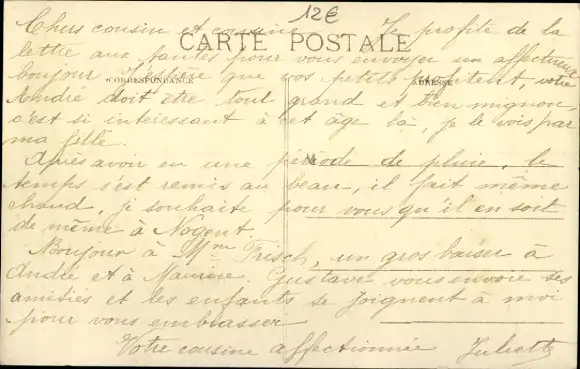 12€
Chers cousin et cousine Je profite de la
CARTE POSTALE
lettre aux tantes pour vous envoyer un affectueux
bonjour J'espère que vos petits profitent, votre
CORRESPONDANCE ADRESSE
André doit être tout grand et bien mignon,
c'est si intéressant à cet âge là, je le vois par
ma fille.
Après avoir eu une période de pluie, le
temps s'est remis au beau, il fait même
chaud, je souhaite pour vous qu'il en soit
de même à Nogent.
Bonjour à Mme Frisch, un gros baiser à
André et à Maurice. Gustave vous envoie ses
amitiés et les enfants se joignent à moi
pour vous embrasser
Votre cousine affectionnée Juliette